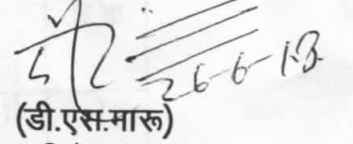 26-6-13
(डी.एस.मारू)